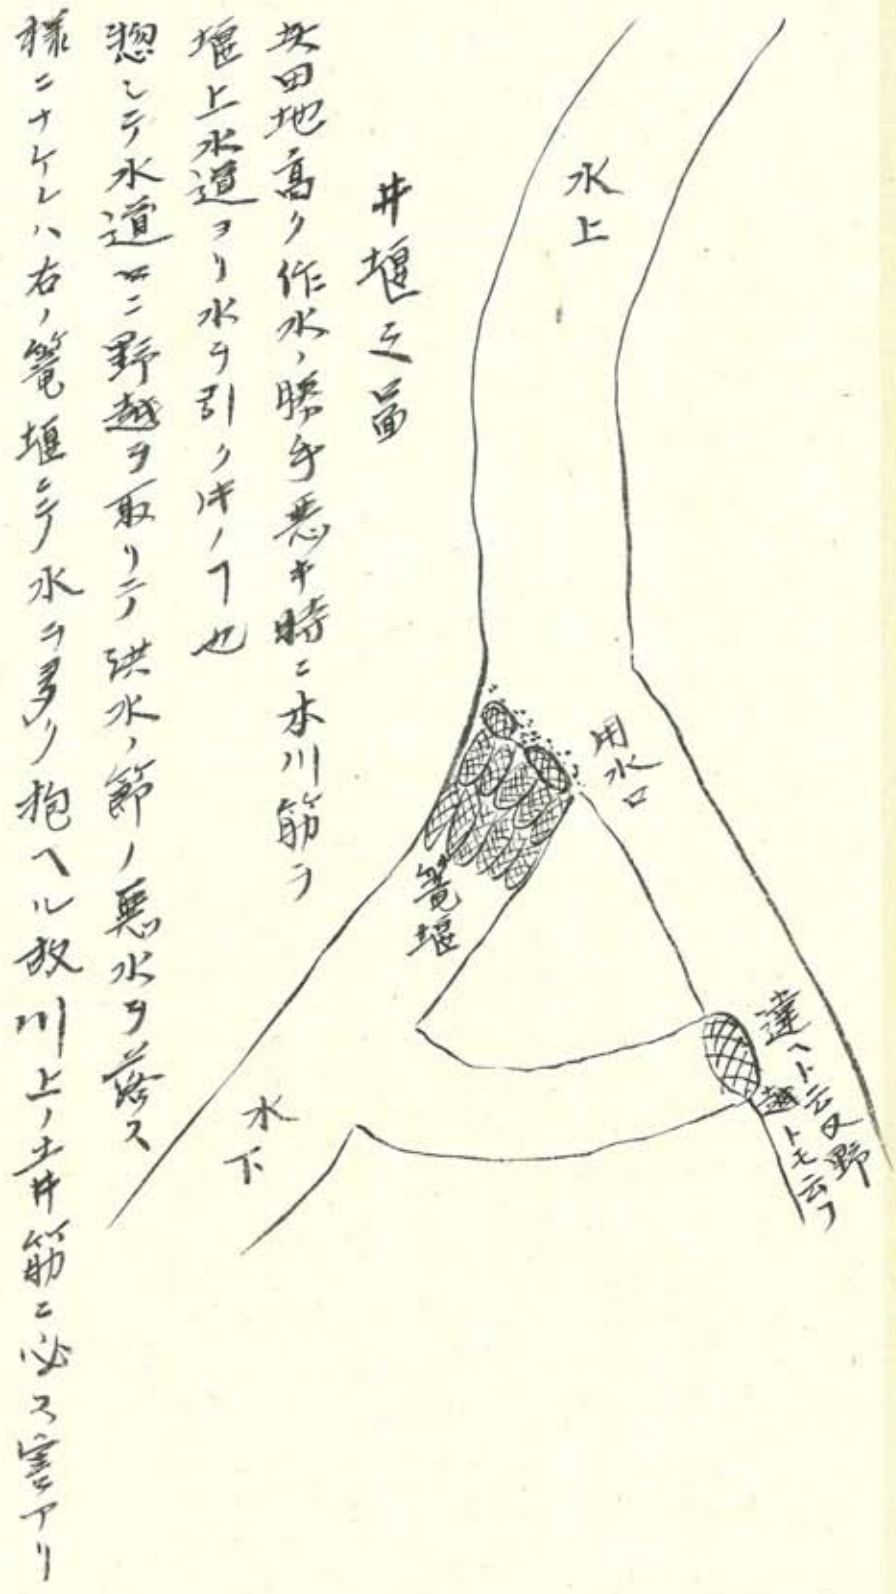 水上
用水口
違ヘト云又野
越トモ云フ
籠堰
水下
井堰之啚
其田地高ク作水ノ勝手悪キ時ニ本川筋ヲ
堰上水道ヨリ水ヲ引ク片ノヿ也
惣シテ水道口ニ野越ヲ取リテ洪水ノ節ノ悪水ヲ落ス
様ニナケレハ右ノ篭堰ニテ水ヲ多ク抱ヘル故川上ノ土井筋ニ必ス害アリ